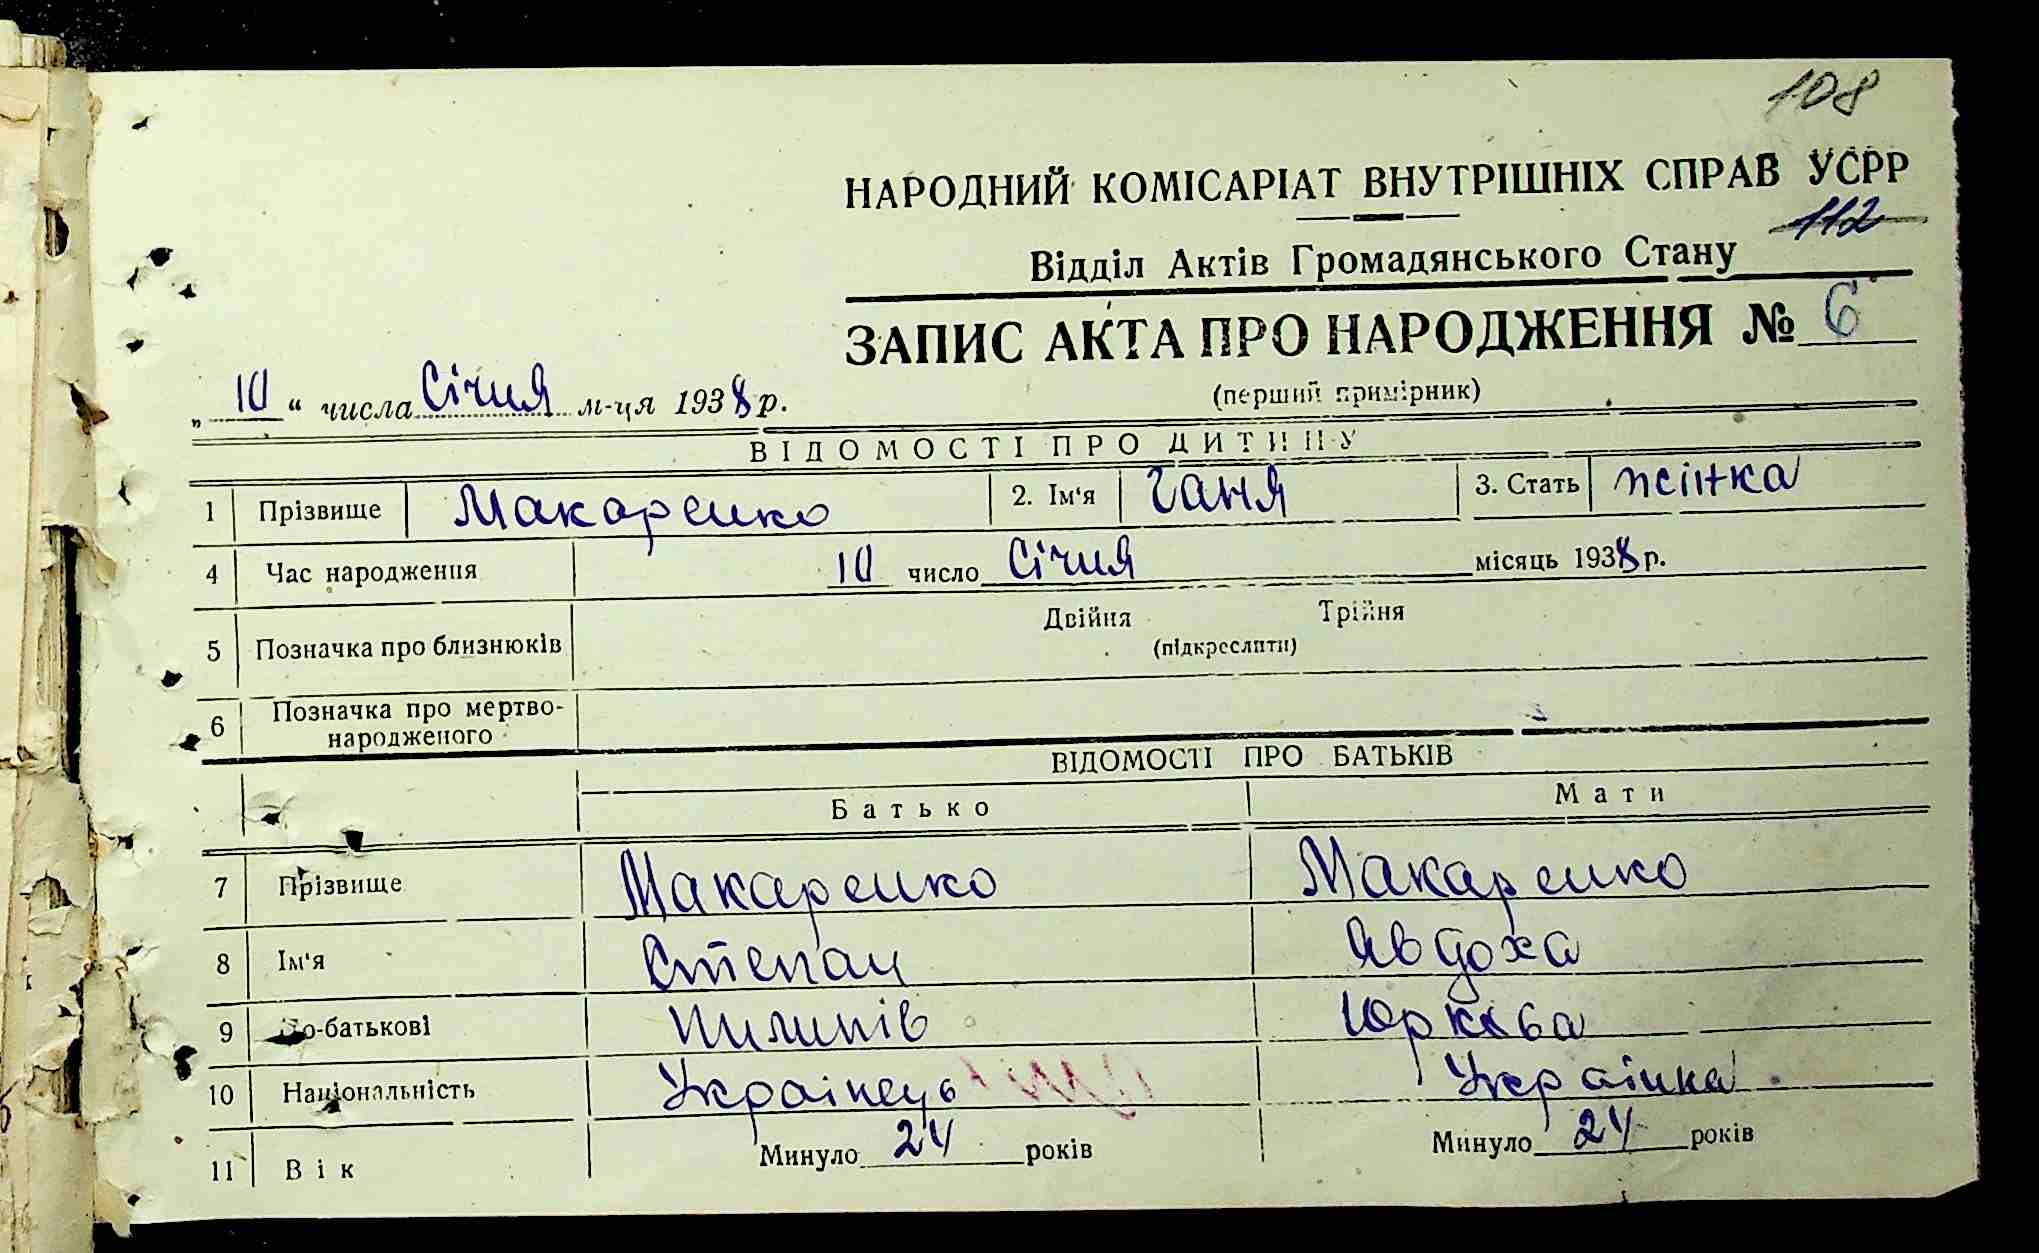 108
НАРОДНИЙ КОМІСАРІАТ ВНУТРІШНІХ СПРАВ УСРР
112
Відділ Актів Громадянського Стану
ЗАПИС АКТА ПРО НАРОДЖЕННЯ № 6
„ 10 “ числа Січня м-ця 1938 р.
(перший примірник)
ВІДОМОСТІ ПРО ДИТИНУ
1 Прізвище Макаренко 2. Ім'я Ганя 3. Стать жінка
4 Час народження 10 число Січня місяць 1938 р.
5 Позначка про близнюків Двійня Трійня
(підкреслити)
6 Позначка про мертво-
народженого
ВІДОМОСТІ ПРО БАТЬКІВ
Батько Мати
7 Прізвище Макаренко Макаренко
8 Ім'я Степан Явдоха
9 По-батькові Пилипів Юрківа
10 Національність Українець Українка
11 Вік Минуло 24 років Минуло 24 років